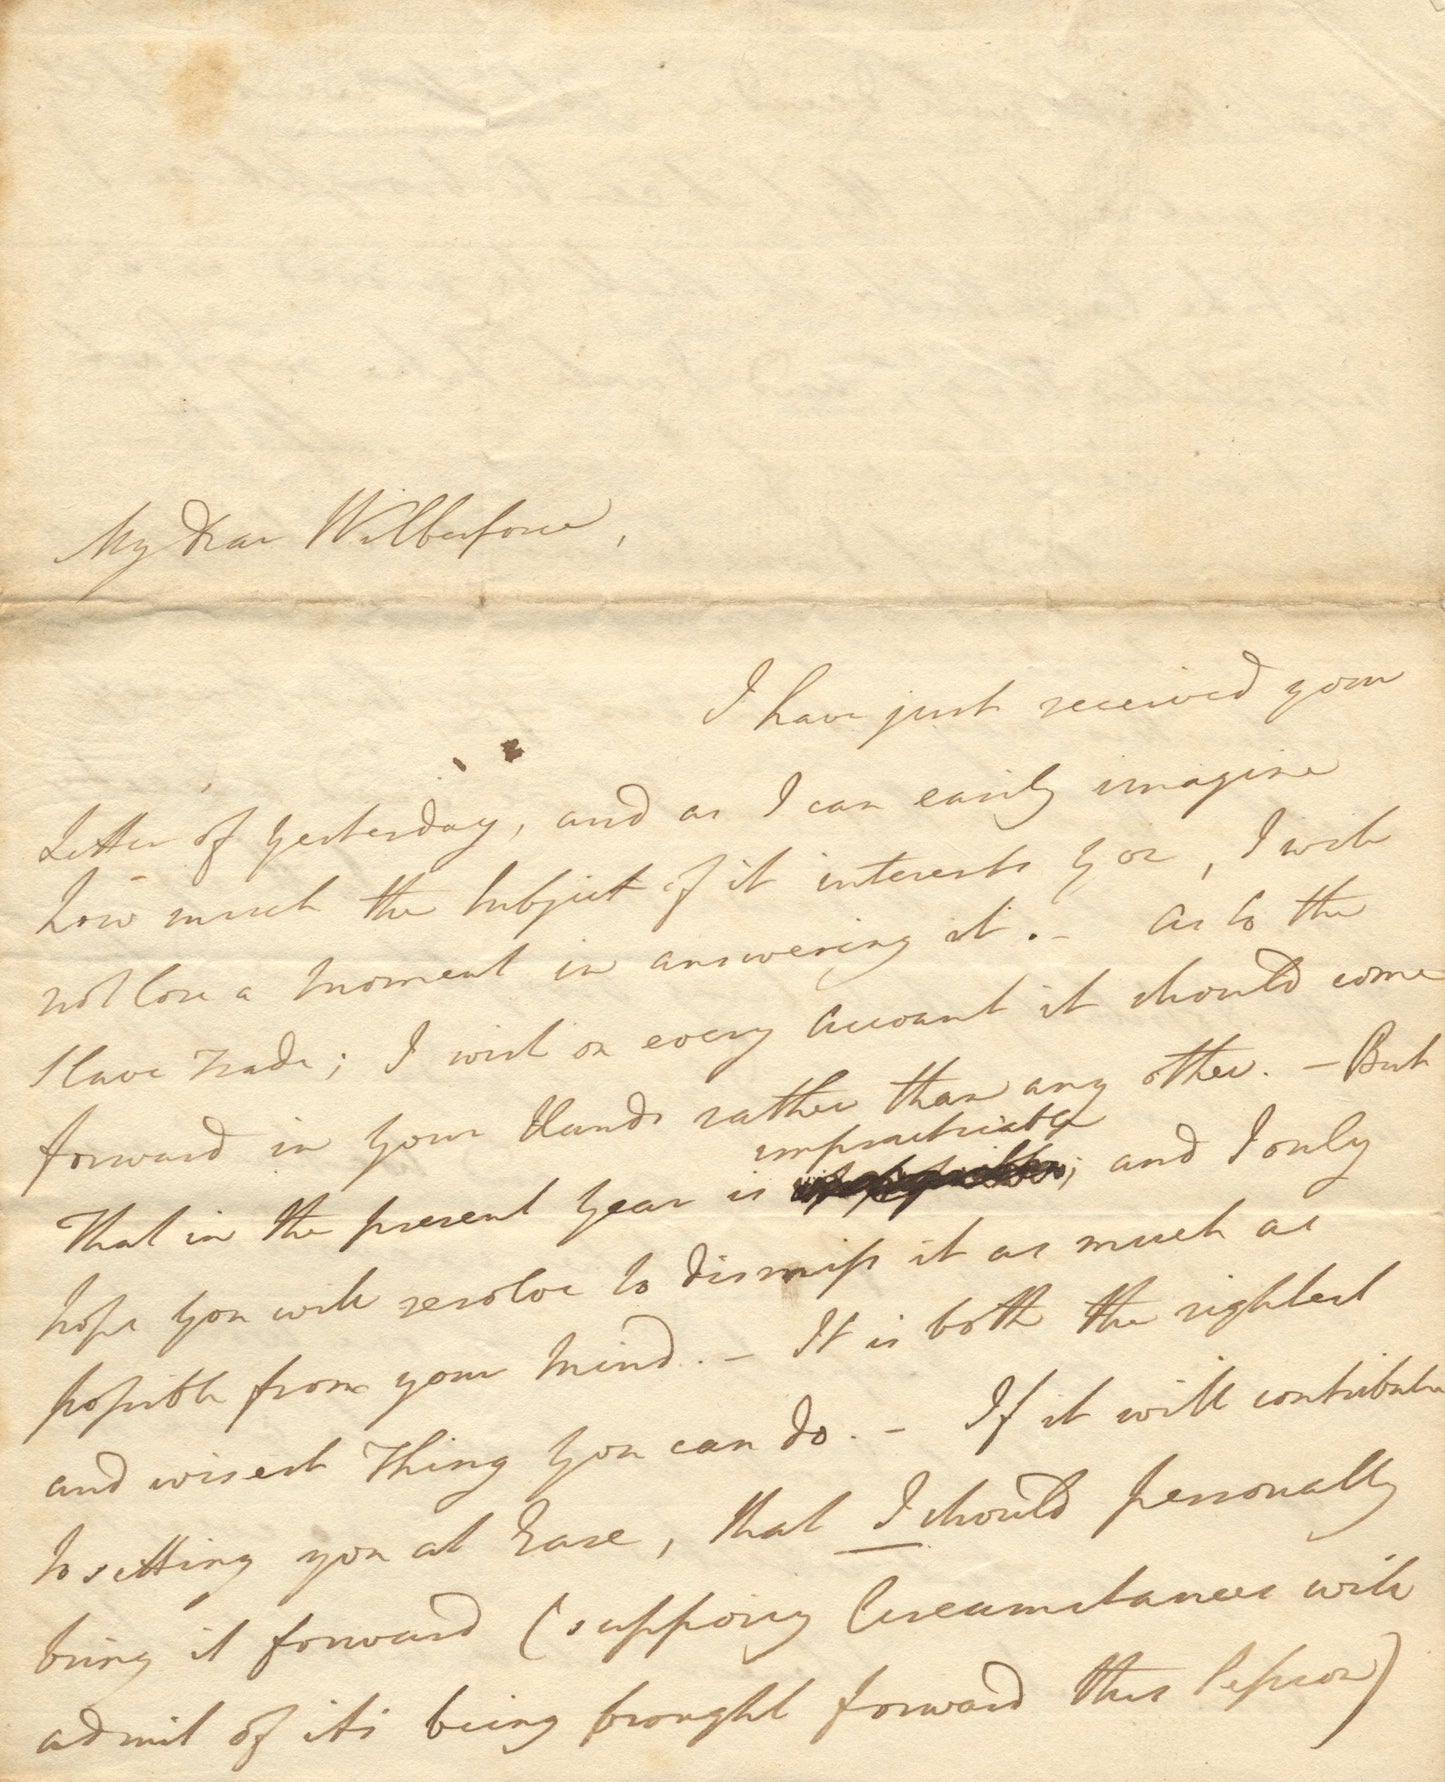 My Dear Wilberforce,
I have just received your
Letter of Yesterday, and as I can easily imagine
how much the Subject of it interests you, I wish
not lose a Moment in answering it. – As to the
Slave Trade; I wish on every Account it should come
forward in your Hands rather than any other. – But
impracticable
That in the present Year is ; and I only
hope you will resolve to dismiss it as much as
possible from your Mind. – It is both the rightest
and wisest Thing you can do. – If it will contribute
to setting you at Ease, that I should personally
bring it forward (supposing Circumstances will
admit of its being brought forward this Session)